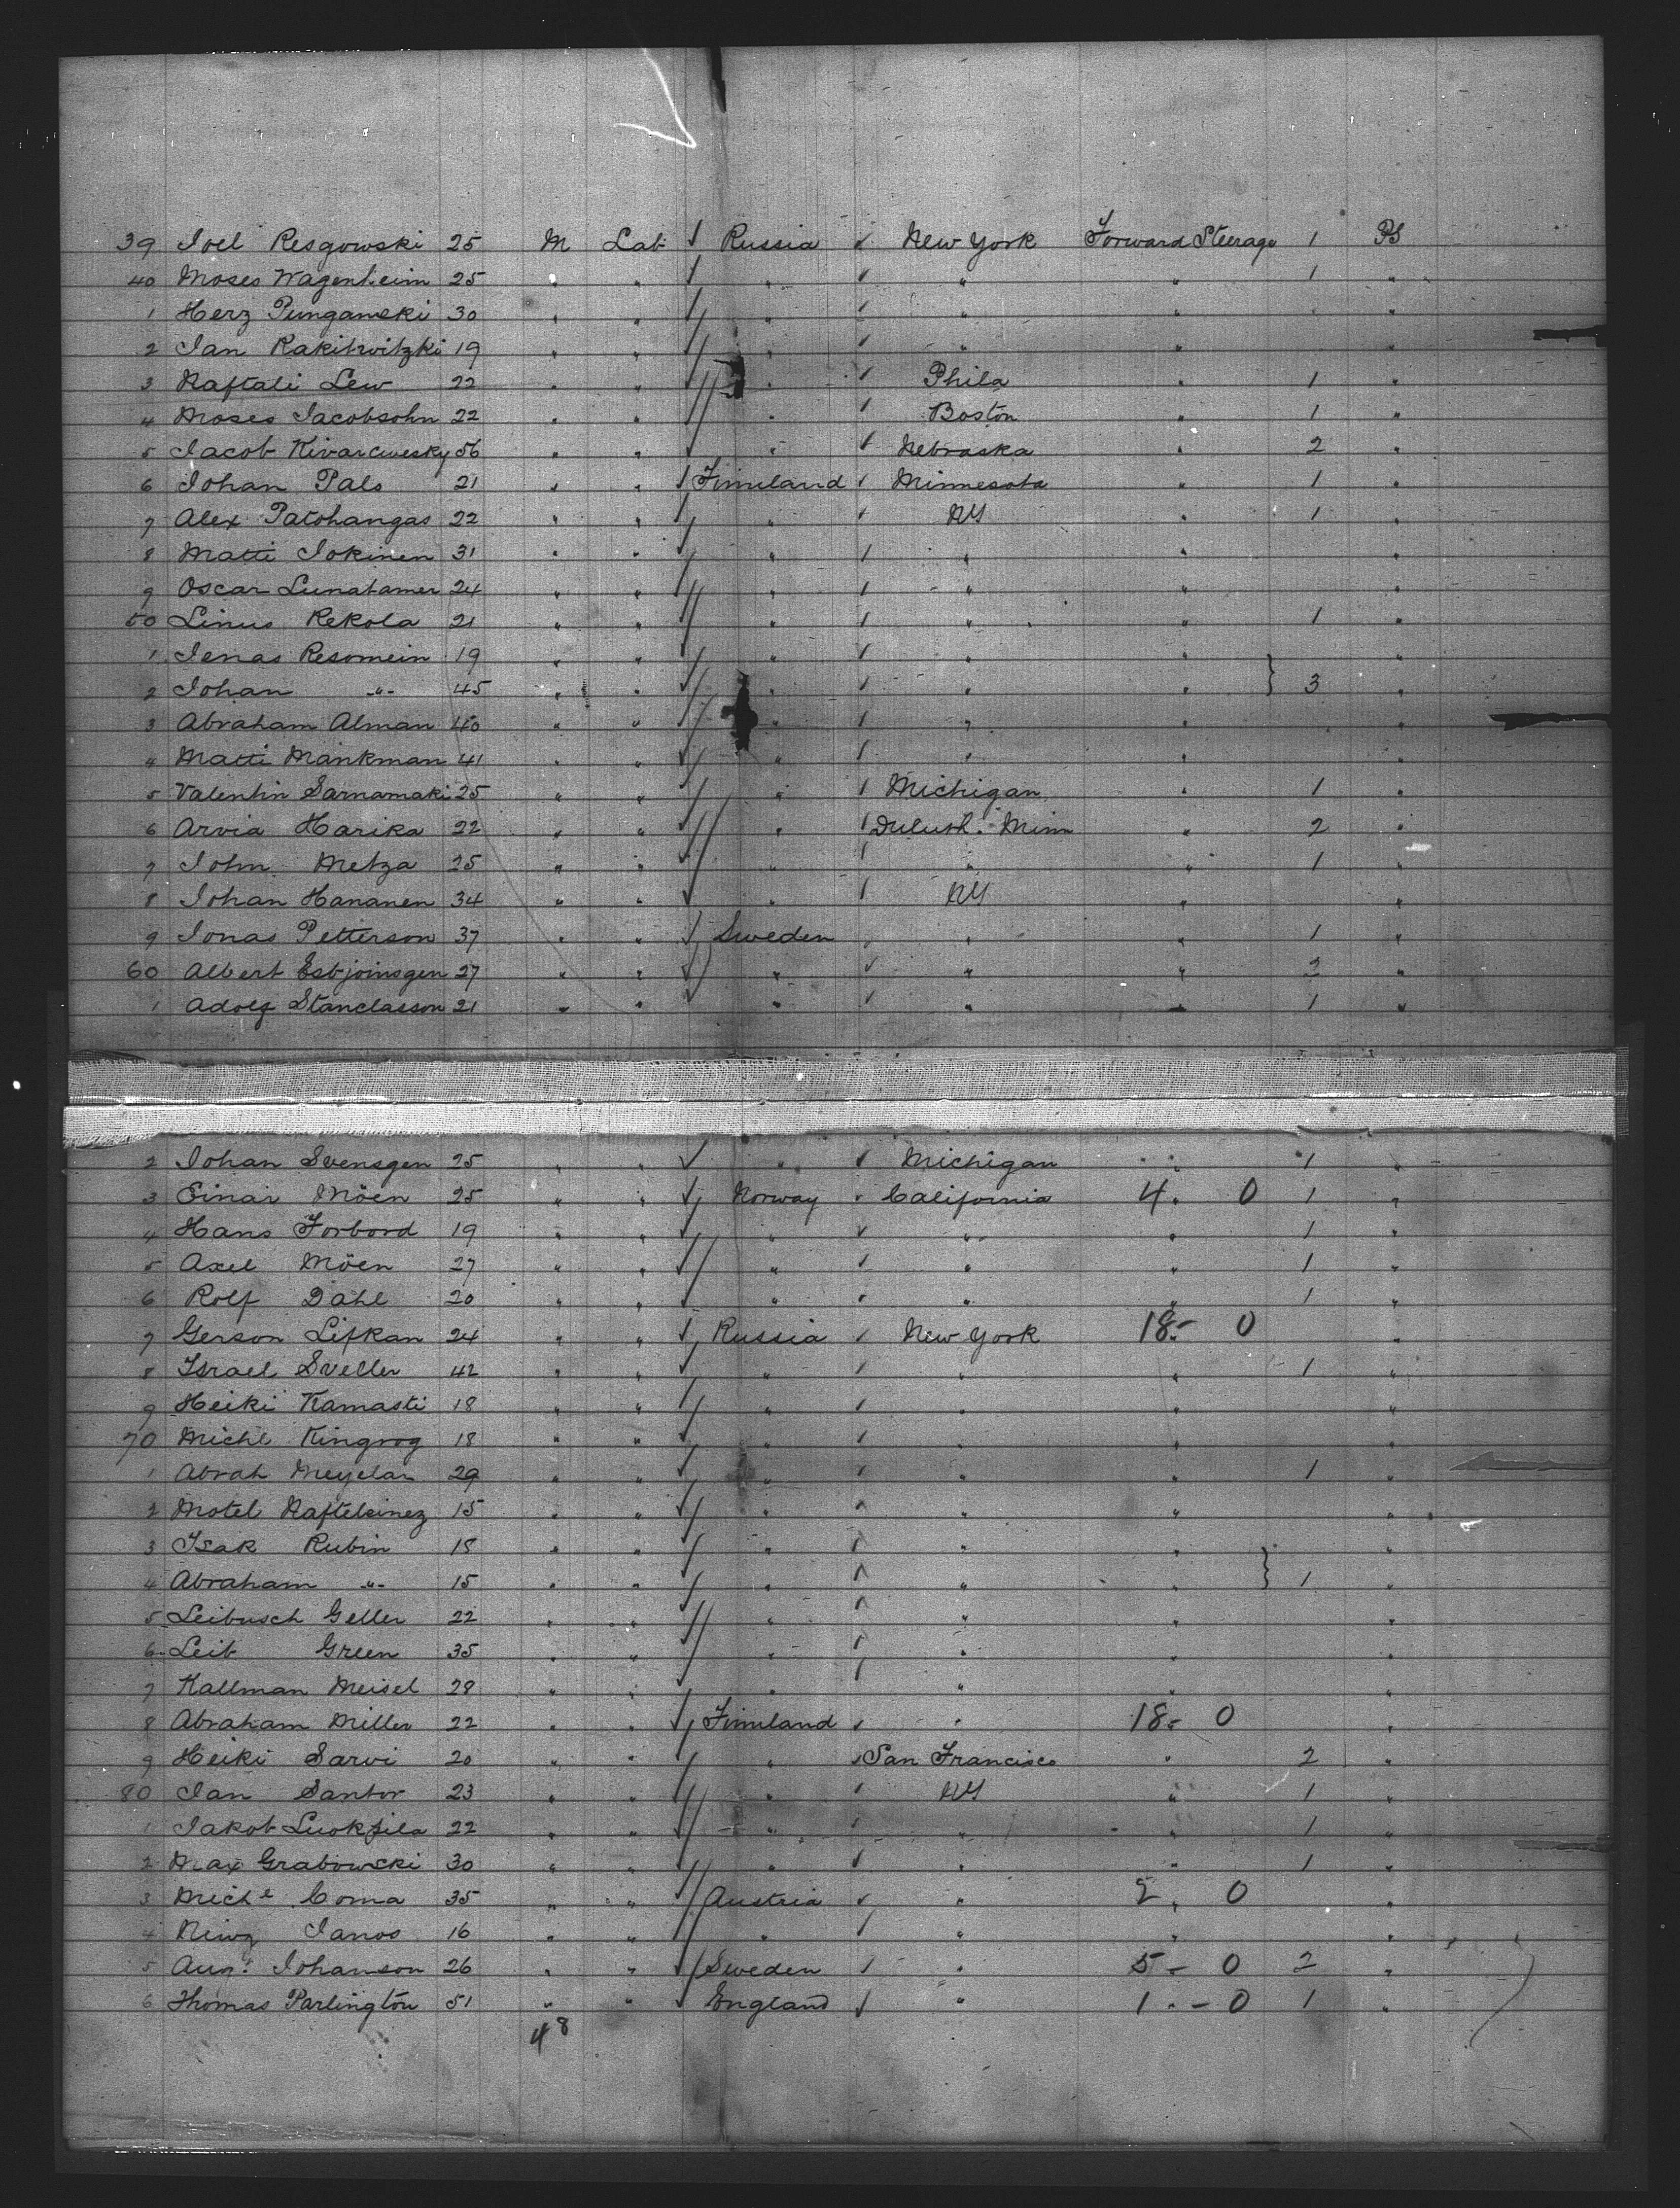 39 Joel Resgowski 25 M Lab Russia New York Forward Steerage 1 PS
40 Moses Wagenheim 25 " " " " " 1 "
1 Herz Punganski 30 " " " " " "
2 Jan Rakitwitzki 19 " " " " " "
3 Naftali Lew 22 " " " Phila " 1 "
4 Moses Jacobsohn 22 " " " Boston " 1 "
5 Jacob Kivarcwesky 56 " " " Nebraska " 2 "
6 Johan Pals 21 " " Finnland Minnesota " 1 "
7 Alex Patohangas 22 " " " NY " 1 "
8 Matti Jokinen 31 " " " " " "
9 Oscar Lunatamer 24 " " " " " "
50 Linus Rekola 21 " " " " " 1 "
1 Jenas Resomein 19 " " " " " "
2 Johan " 45 " " " " " } 3 "
3 Abraham Alman 40 " " " " " "
4 Matti Mankman 41 " " " " " "
5 Valentin Sarnamaki 25 " " " Michigan " 1 "
6 Arvia Harika 22 " " " Duluth. Minn " 2 "
7 John Metza 25 " " " " " 1 "
8 Johan Hananen 34 " " " NY " "
9 Jonas Petterson 37 " " Sweden " " 1 "
60 Albert Esbjoinsgen 27 " " " " " 2 "
1 Adolf Stanclasson 21 " " " " " 1 "
2 Johan Svensgen 25 " " " Michigan " 1 "
3 Einar Möen 25 " " Norway California 4 " 0 1 "
4 Hans Forbord 19 " " " " " 1 "
5 Axel Möen 27 " " " " " 1 "
6 Rolf Dahl 20 " " " " " 1 "
7 Gerson Lifkan 24 " " Russia New York 18 - 0 "
8 Israel Sveller 42 " " " " " 1 "
9 Heiki Kamasti 18 " " " " " "
70 Michl Kingrog 18 " " " " " "
1 Abrah Meyelan 29 " " " " " 1 "
2 Motel Naftelsinez 15 " " " " " "
3 Isak Rubin 18 " " " " " "
4 Abraham " 15 " " " " " } 1 "
5 Leibusch Geller 22 " " " " " "
6 Leib Green 35 " " " " " "
7 Kallman Meisel 28 " " " " " "
8 Abraham Miller 22 " " Finnland " 18 - 0 "
9 Heiki Sarvi 20 " " " San Francisco " 2 "
80 Jan Santor 23 " " " NY " 1 "
1 Jakob Luokjila 22 " " " " " 1 "
2 Max Grabowski 30 " " " " " 1 "
3 Michl Coma 35 " " Austria " 2 " 0 "
4 Janos 16 " " " " " "
5 Aug. Johanson 26 " " Sweden " 5 - 0 2 "
6 Thomas Parlington 51 " " England " 1 " - 0 1 "
48